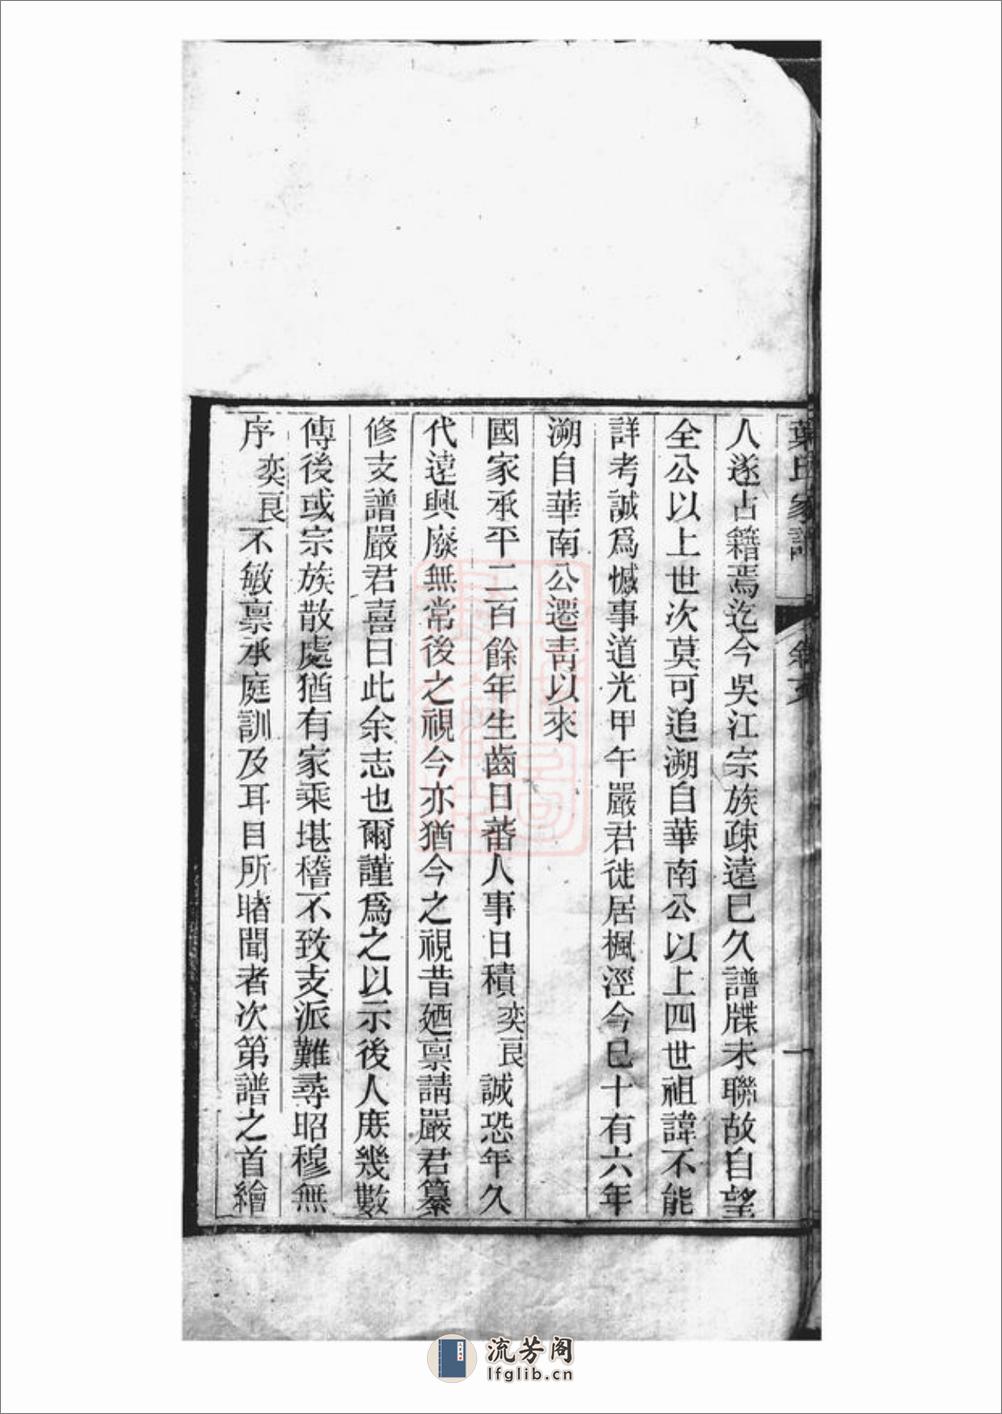 葉氏家譜
人遂占籍焉迄今吳江宗族疎遠已久譜牒未聯故自望
全公以上世次莫可追溯自華南公以上四世祖諱不能
詳考誠爲憾事道光甲午嚴君徙居楓涇今已十有六年
溯自華南公遷靑以來
國家承平二百餘年生齒日蕃人事日積奕良誠恐年久
代遠興廢無常後之視今亦猶今之視昔廼禀請嚴君纂
修支譜嚴君喜曰此余志也爾謹爲之以示後人庶幾數
傳後或宗族散處猶有家乘堪稽不致支派難尋昭穆無
序奕良不敏禀承庭訓及耳目所睹聞者次第譜之首繪
流芳阁
lfglib.cn